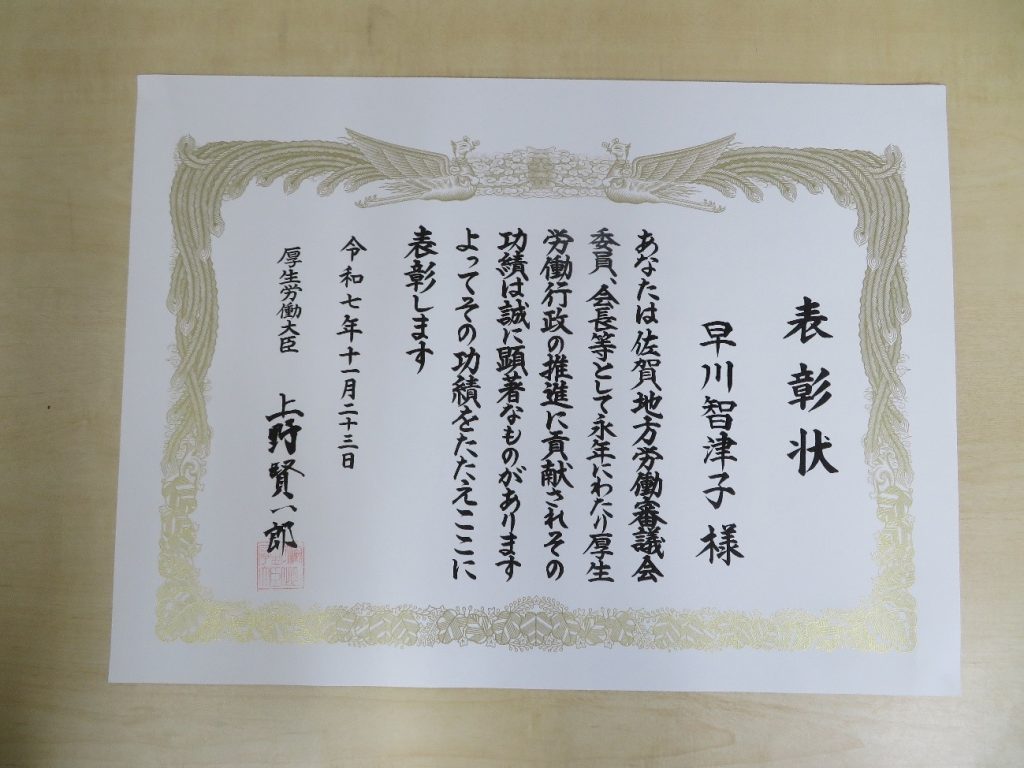 表彰状
早川智津子様
あなたは佐賀地方労働審議会
委員、会長等として永年にわたり厚生
労働行政の推進に貢献されその
功績は誠に顕著なものがあります
よってその功績をたたえここに
表彰します
令和七年十一月二十三日
厚生労働大臣 上野賢一郎